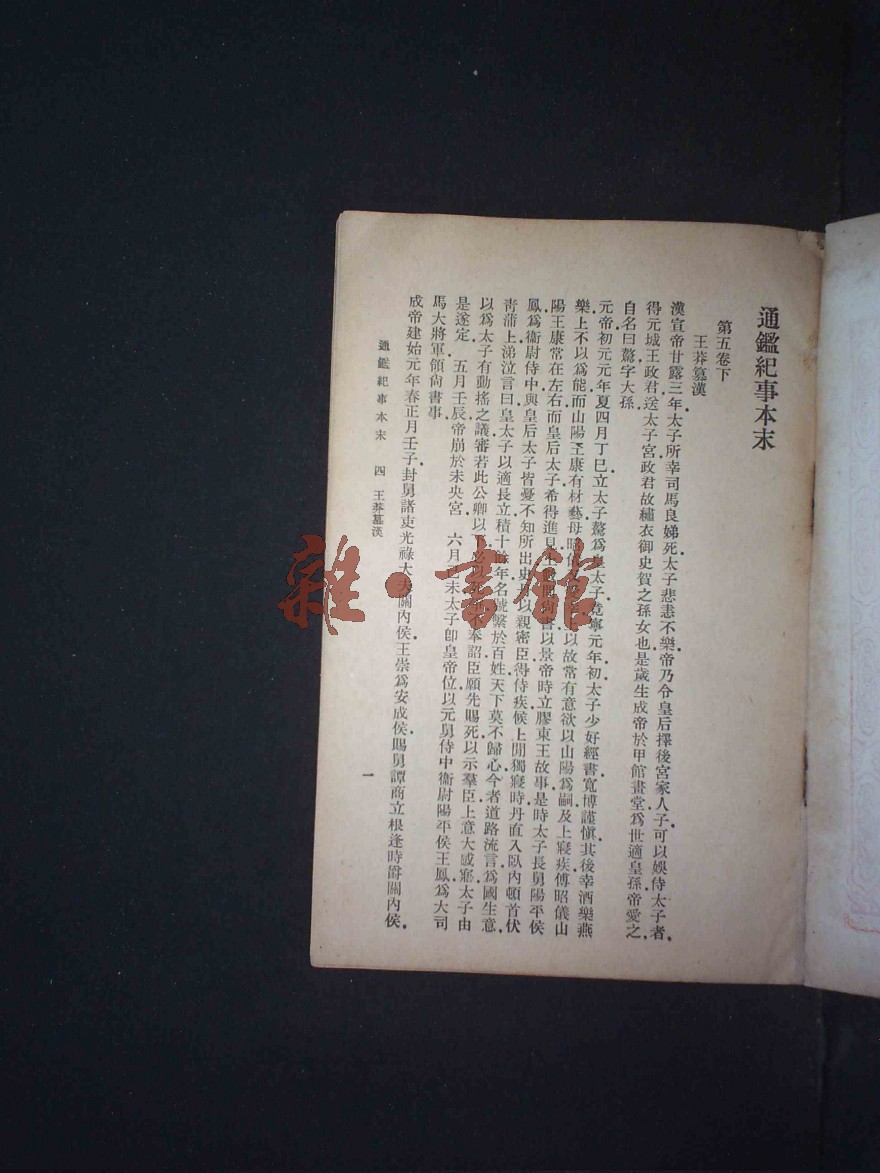 通鑑紀事本末
第五卷下
王莽篡漢
漢宣帝甘露三年太子所幸司馬良娣死太子悲恚不樂帝乃令皇后擇後宮家人子可以娛侍太子者
得元城王政君送太子宮政君故繡衣御史賀之孫女也是歲生成帝於甲館畫堂爲世適皇孫帝愛之
自名曰驁字大孫
元帝初元元年夏四月丁巳立太子驁爲皇太子竟寧元年初太子少好經書寬博謹愼其後幸酒樂燕
樂上不以爲能而山陽王康有材藝母昭儀 以故常有意欲以山陽爲嗣及上寢疾傅昭儀山
陽王康常在左右而皇后太子希得進見 書以景帝時立膠東王故事是時太子長舅陽平侯
鳳爲衞尉侍中與皇后太子皆憂不知所出史丹以親密臣得侍疾候上閒獨寢時丹直入臥內頓首伏
靑蒲上涕泣言曰皇太子以適長立積十餘年名號繫於百姓天下莫不歸心今者道路流言爲國生意
以爲太子有動搖之議審若此公卿以下 奉詔臣願先賜死以示羣臣上意大感寤太子由
是遂定 五月壬辰帝崩於未央宮 六月己未太子卽皇帝位以元舅侍中衞尉陽平侯王鳳爲大司
馬大將軍領尙書事
成帝建始元年春正月壬子封舅諸吏光祿大夫關內侯王崇爲安成侯賜舅譚商立根逢時爵關內侯
通鑑紀事本末 四 王莽篡漢
一
雜·書館